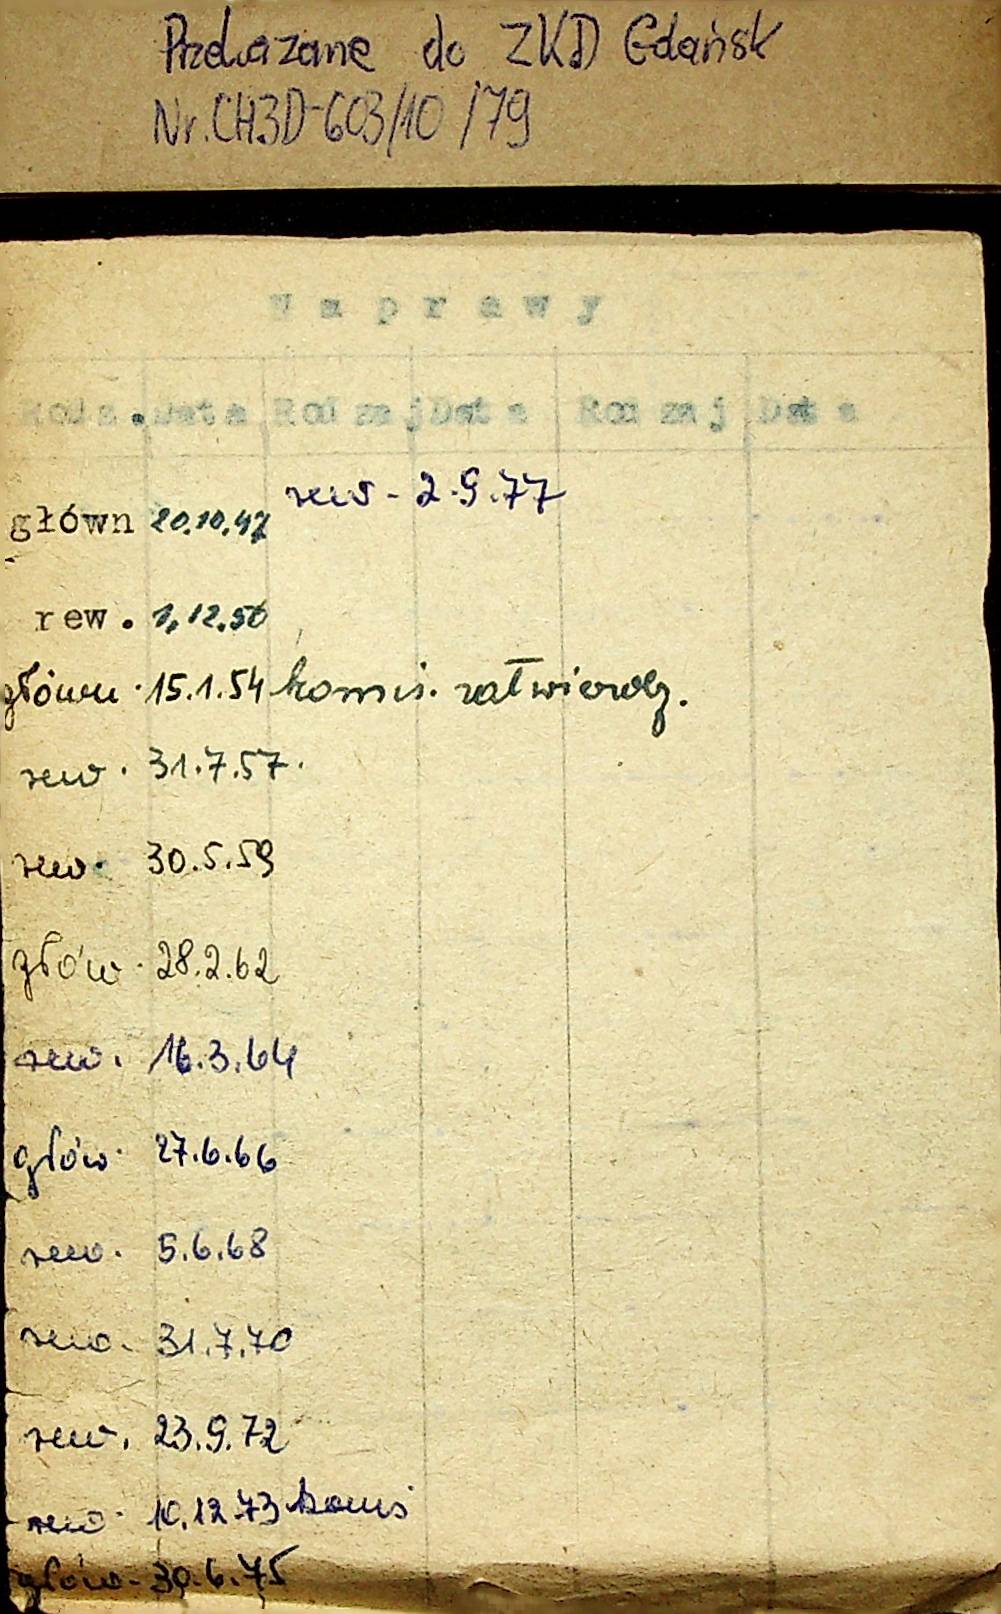 Przekazane do ZKD Gdańsk
Nr. CH3D-603/10/79
Naprawy
Rodz. Data Rodzaj Data Rodzaj Data
główn 20.10.47 rew - 2.9.77
rew. 1.12.50
główn. 15.1.54 komis. zatwierdz.
rew. 31.7.57.
rew. 30.5.59
głów. 28.2.62
rew. 16.3.64
głów. 27.6.66
rew. 5.6.68
rew. 31.7.70
rew. 23.9.72
rew. 10.12.73 komis
głów. 30.6.75